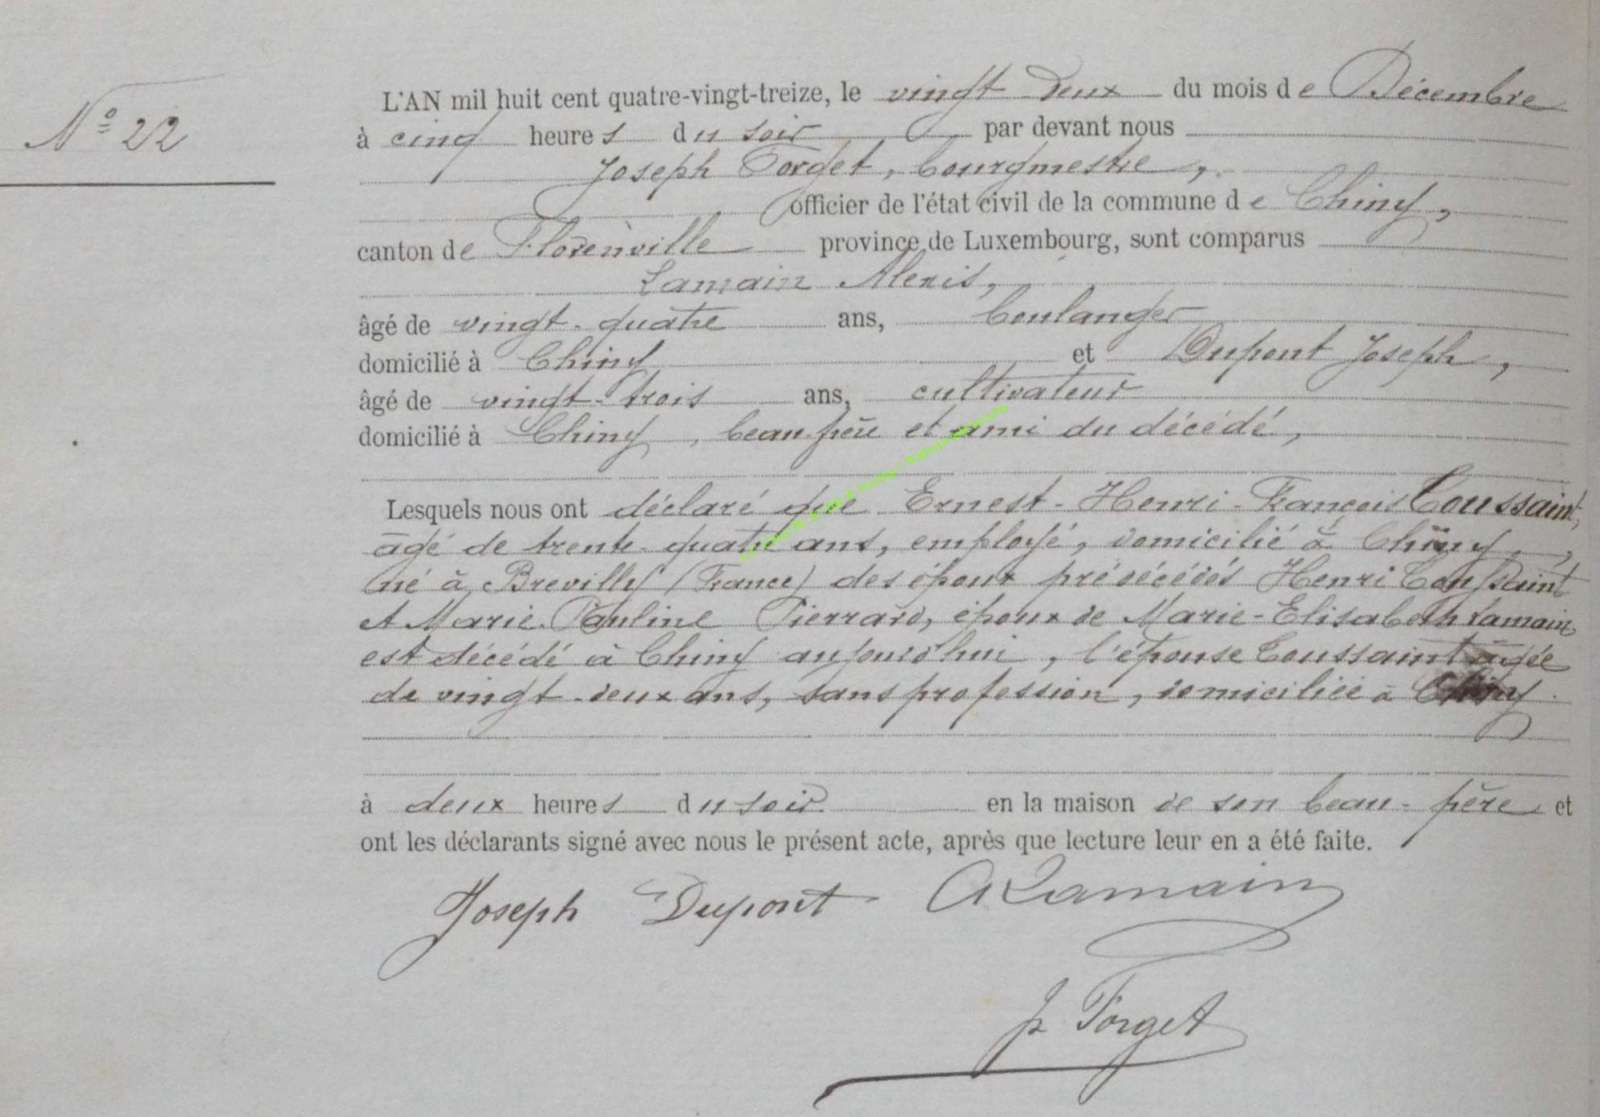 N° 22
L'AN mil huit cent quatre-vingt-treize, le vingt deux du mois de Décembre
à cinq heures du soir par devant nous
Joseph Forget, bourgmestre,
officier de l'état civil de la commune de Chiny,
canton de Florenville province de Luxembourg, sont comparus
Lamain Alexis,
âgé de vingt-quatre ans, boulanger
domicilié à Chiny et Dupont Joseph,
âgé de vingt-trois ans, cultivateur
domicilié à Chiny, beau-père et ami du décédé,
Lesquels nous ont déclaré que Ernest-Henri-François Toussaint,
âgé de trente-quatre ans, employé, domicilié à Chiny,
né à Brevilly (France) des époux prédécédés Henri Toussaint
et Marie-Pauline Pierrard, époux de Marie-Elisabeth Lamain
est décédé à Chiny aujourd'hui, l'épouse Toussaint âgée
de vingt-deux ans, sans profession, domiciliée à Chiny.
à deux heures du soir en la maison de son beau-père et
ont les déclarants signé avec nous le présent acte, après que lecture leur en a été faite.
Joseph Dupont A Lamain
J. Forget